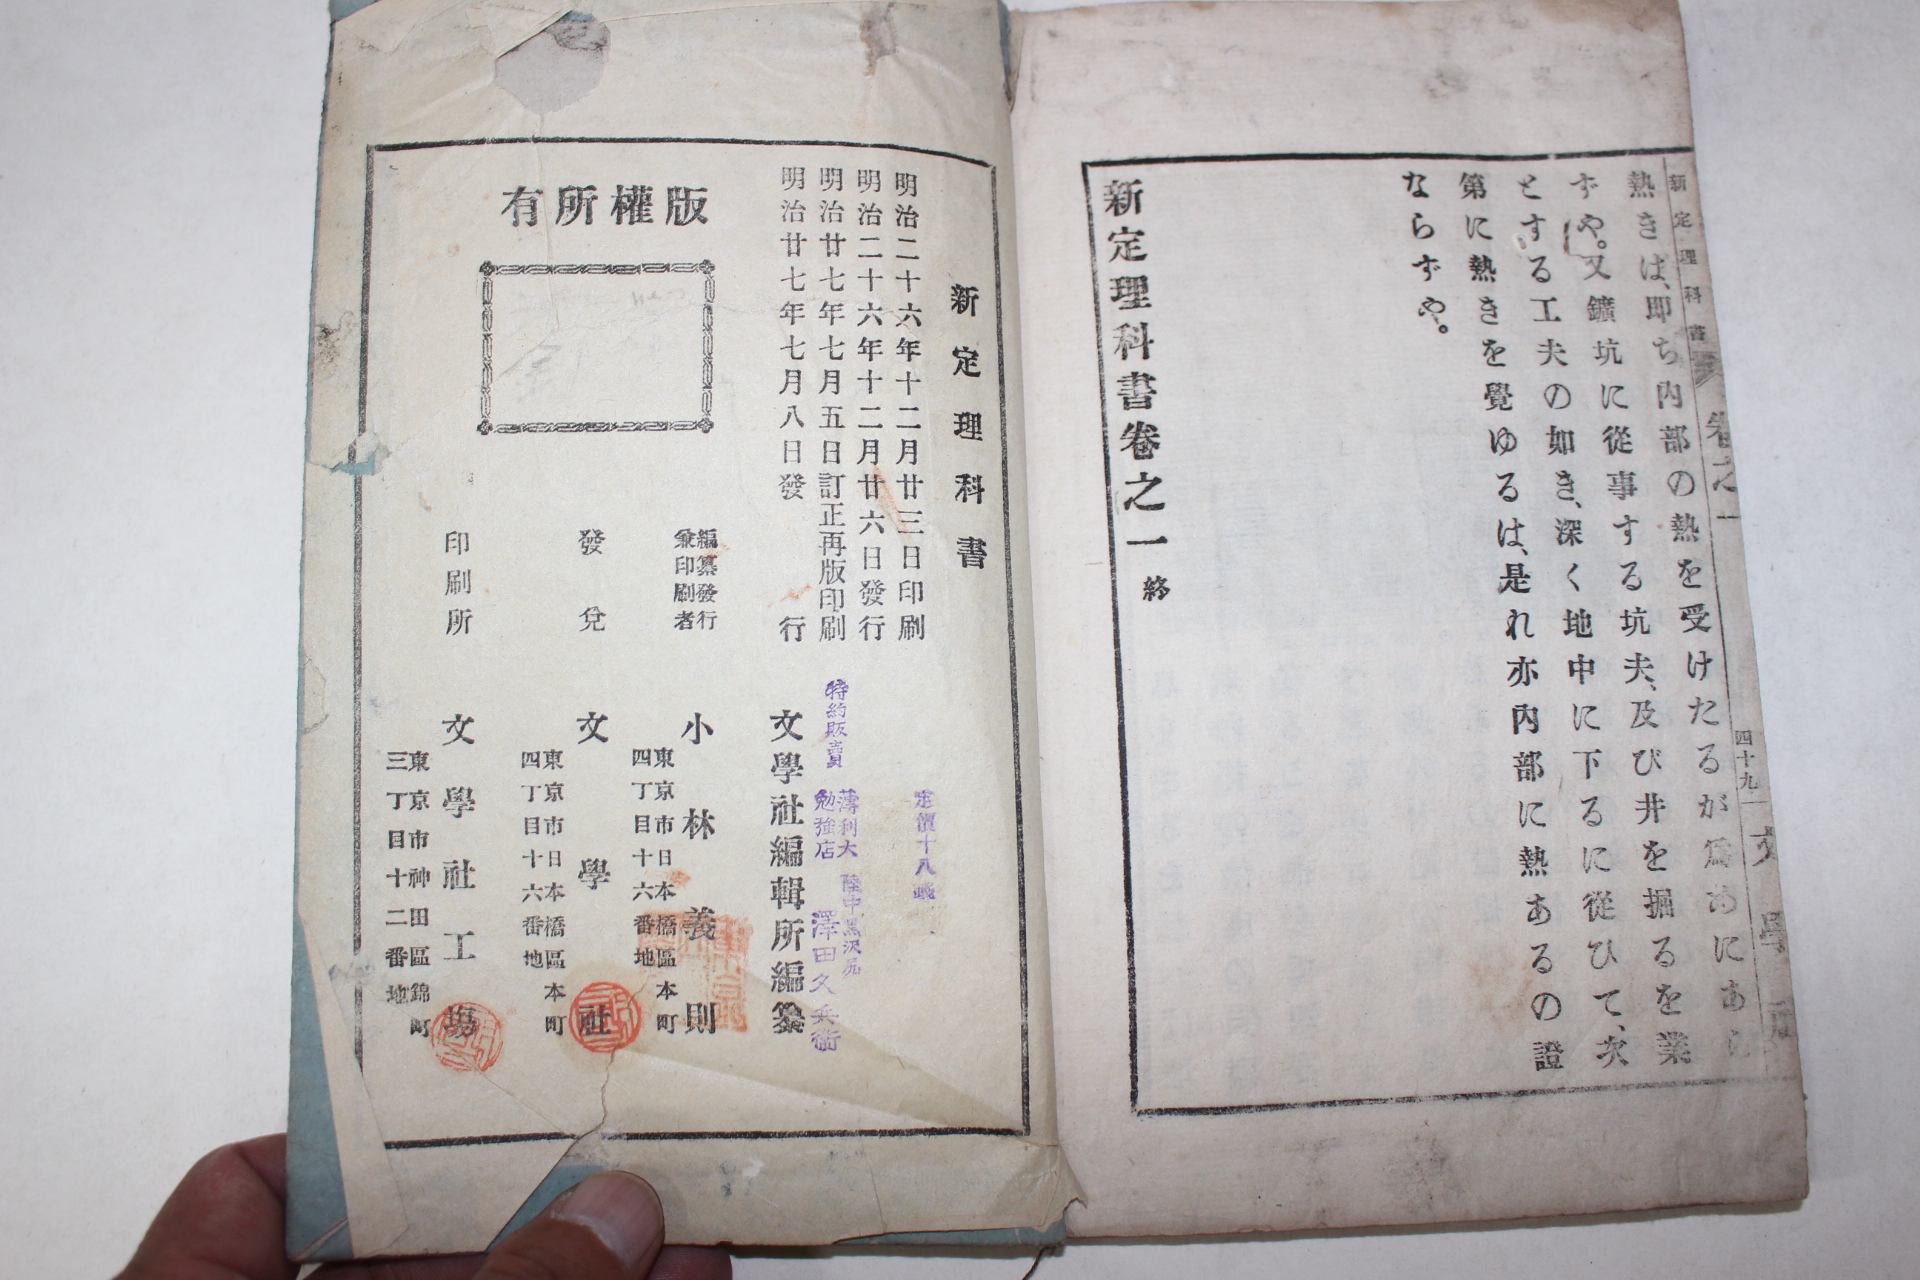 新定理科書 卷之一 四十九 文學
熱きは、即ち內部の熱を受けたるが爲めにあら
ずや。又鑛坑に從事する坑夫、及び井を掘るを業
とする工夫の如き、深く地中に下るに從ひて、次
第に熱きを覺ゆるは、是れ亦內部に熱あるの證
ならずや。
新定理科書卷之一 終
新定理科書
明治二十六年十二月廿三日印刷
明治二十六年十二月廿六日發行
明治廿七年七月五日訂正再版印刷
明治廿七年七月八日發行
定價十八錢
特約販賣 薄利大勉強店 陸中黑沢尻 澤田久兵衛
文學社編輯所編纂
編纂發行兼印刷者 小林義則
東京市日本橋區本町
四丁目十六番地
發兌 文學社
東京市日本橋區本町
四丁目十六番地
印刷所 文學社工場
東京市神田區錦町
三丁目十二番地
版權所有